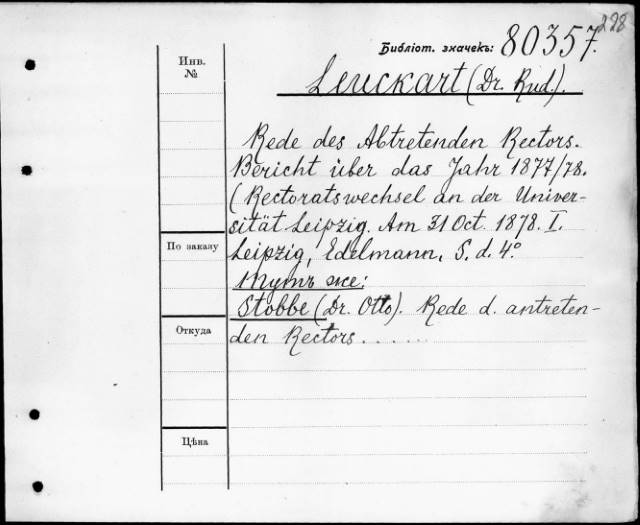 298
Библіот. значекъ: 80357.
Инв. №
Leuckart (Dr. Rud.).
Rede des Abtretenden Rectors.
Bericht über das Jahr 1877/78.
(Rectoratswechsel an der Univer-
sität Leipzig. Am 31 Oct. 1878. I.
По заказу
Leipzig, Edelmann, S. d. 4°
Тутъ же:
Stobbe (Dr. Otto). Rede d. antreten-
Откуда
den Rectors . . . . . .
Цѣна